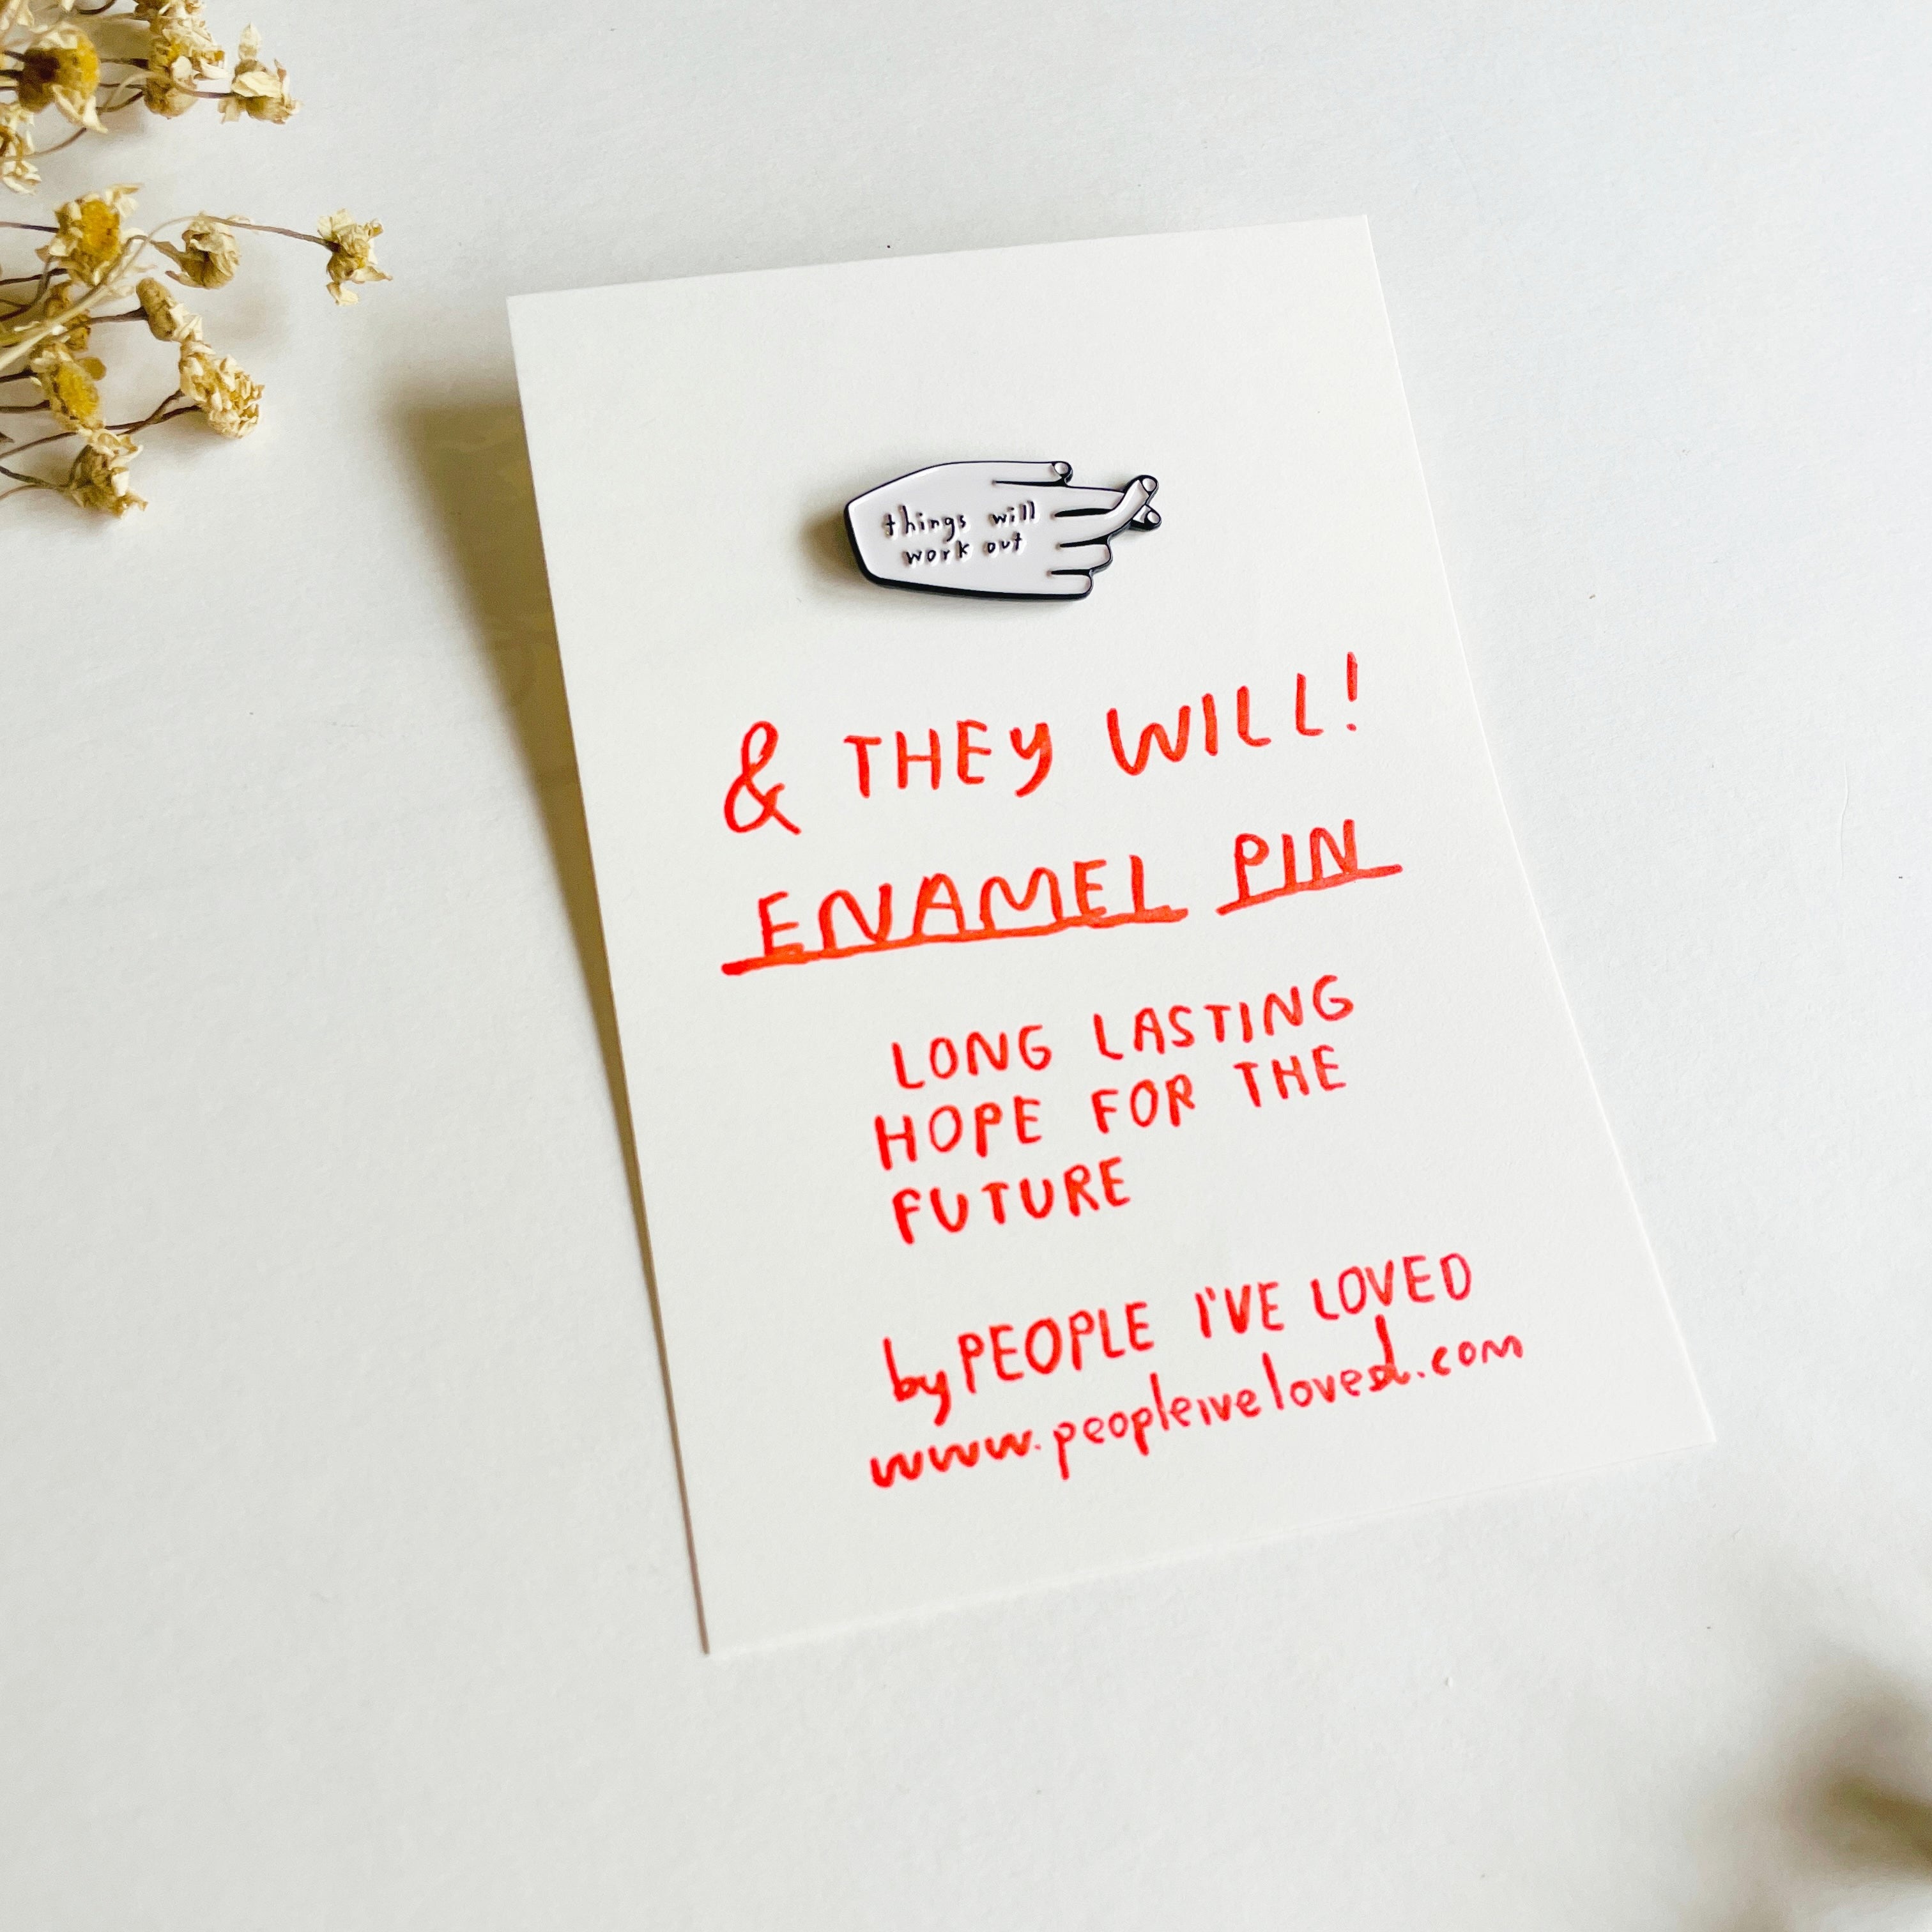 things will
work out
& THEY WILL!
ENAMEL PIN
LONG LASTING
HOPE FOR THE
FUTURE
by PEOPLE I'VE LOVED
www.peopleiveloved.com